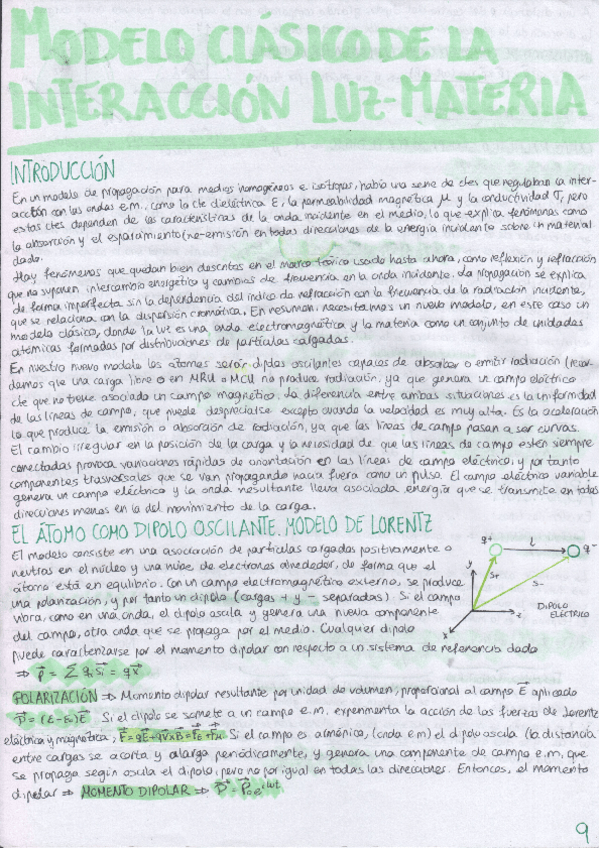 MODELO CLÁSICO DE LA
INTERACCIÓN LUZ-MATERIA
INTRODUCCIÓN
En un modelo de propagación para medios homogéneos e isótropos, había una serie de ctes que regulaban la inter-
acción con las ondas e.m., como la cte dieléctrica ε, la permeabilidad magnética μ y la conductividad σ, pero
estas ctes dependen de las características de la onda incidente en el medio, lo que explica fenómenos como
la absorción y el esparcimiento (re-emisión en todas direcciones de la energía incidente sobre un material
dado.
Hay fenómenos que quedan bien descritos en el marco teórico usado hasta ahora, como reflexión y refracción
que no suponen intercambio energético y cambios de frecuencia en la onda incidente. La propagación se explica
de forma imperfecta sin la dependencia del índice de refracción con la frecuencia de la radiación incidente,
que se relaciona con la dispersión cromática. En resumen, necesitamos un nuevo modelo, en este caso un
modelo clásico, donde la luz es una onda electromagnética y la materia como un conjunto de unidades
atómicas formadas por distribuciones de partículas cargadas.
En nuestro nuevo modelo los átomos serán dipolos oscilantes capaces de absorber o emitir radiación (recor-
damos que una carga libre o en MRU o MCU no produce radiación, ya que genera un campo eléctrico
cte que no tiene asociado un campo magnético. La diferencia entre ambas situaciones es la uniformidad
de las líneas de campo, que puede despreciarse excepto cuando la velocidad es muy alta. Es la aceleración
lo que produce la emisión o absorción de radiación, ya que las líneas de campo pasan a ser curvas.
El cambio irregular en la posición de la carga y la necesidad de que las líneas de campo estén siempre
conectadas provoca variaciones rápidas de orientación en las líneas de campo eléctrico, y por tanto
componentes trasversales que se van propagando hacia fuera como un pulso. El campo eléctrico variable
genera un campo eléctrico y la onda resultante lleva asociada energía que se transmite en todas
direcciones menos en la del movimiento de la carga.
EL ÁTOMO COMO DIPOLO OSCILANTE. MODELO DE LORENTZ
El modelo consiste en una asociación de partículas cargadas positivamente o
neutras en el núcleo y una nube de electrones alrededor, de forma que el
átomo está en equilibrio. Con un campo electromagnético externo, se produce
una polarización, y por tanto un dipolo (cargas + y - separadas) Si el campo
vibra, como en una onda, el dipolo oscila y genera una nueva componente
del campo, otra onda que se propaga por el medio. Cualquier dipolo
puede caracterizarse por el momento dipolar con respecto a un sistema de referencia dado
q+ L q-
y S+ S-
z
x
DIPOLO
ELÉCTRICO
⇒ p⃗ = Σ qᵢ s⃗ᵢ = q r⃗
POLARIZACIÓN ⇒ Momento dipolar resultante por unidad de volumen, proporcional al campo E⃗ aplicado
P⃗ = (ε-ε₀)E⃗ Si el dipolo se somete a un campo e.m, experimenta la acción de las fuerzas de Lorentz
eléctrica y magnética, F⃗ = qE⃗ + qv⃗xB⃗ = F⃗E + F⃗M. Si el campo es armónico, (onda e.m) el dipolo oscila (la distancia
entre cargas se acorta y alarga periódicamente, y genera una componente de campo e.m, que
se propaga según oscila el dipolo, pero no por igual en todas las direcciones. Entonces, el momento
dipolar ⇒ MOMENTO DIPOLAR ⇒ P⃗ = P⃗₀ e^iωt
9